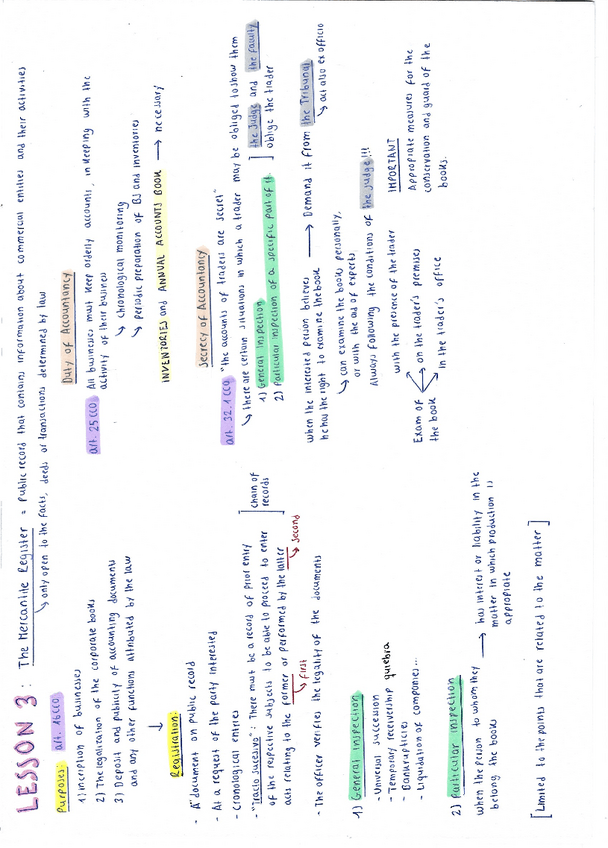 LESSON 3: The Mercantile Register = Public record that contains information about commercial entities and their activities
↳ only open to the facts, deeds or transactions determined by law
Purposes: art. 16 CCO
1) Inscription of businesses
2) The legalization of the corporate books
3) Deposit and publicity of accounting documents
and any other functions attributed by the law
↓
Registration:
- A document on public record
- At a request of the party interested
- Cronological entries
- "Tracto sucesivo": There must be a record of prior entry
of the respective subjects to be able to proceed to enter
acts relating to the former or performed by the latter
] chain of
records
↳ First
↳ Second
- The officer verifies the legality of the documents
1) General Inspection
- Universal succession
- Temporary receivership quiebra
- Bankruptcies
- Liquidation of companies...
2) Particular inspection
when the person to whom they
belong the books
→ has interest or liability in the
matter in which production is
appropriate
[Limited to the points that are related to the matter]
Duty of Accountancy
art. 25 CCO All businesses must keep orderly accounts, in keeping with the
activity of their business
↳ chronological monitoring
↳ periodic preparation of BS and inventories
INVENTORIES and ANNUAL ACCOUNTS BOOK → necessary
Secrecy of Accountancy
art. 32.1 CCO "the accounts of traders are secret"
↳ there are certain situations in which a trader may be obliged to show them
1) General Inspection
2) Particular inspection of a specific part of it
] the Judge and the Faculty
oblige the trader
when the interested person believes
he has the right to examine the book
→ Demand it from the Tribunal
↳ act also ex officio
↳ can examine the books personally,
or with the aid of experts
Always following the conditions of the judge!!!
with the presence of the trader
Exam of
the book
on the trader's premises
In the trader's office
IMPORTANT
Appropiate measures for the
conservation and guard of the
books.